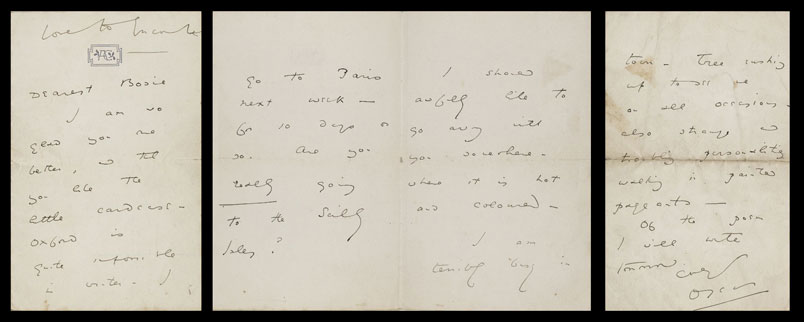 Love to Encombe
Dearest Bosie
I am so
glad you are
better, and that
you like the
little cardcase –
Oxford is
quite impossible
in winter. I
go to Paris
next week –
for 10 days or
so. Are you
really going
to the Scilly
Isles?
I should
awfully like to
go away with
you somewhere –
where it is hot
and coloured –
I am
terribly busy in
town – Tree
up to see me
on all occasions –
also strange and
troubling personalities
walking in painted
pageants –
Of the poem
I will write
tomorrow
Oscar